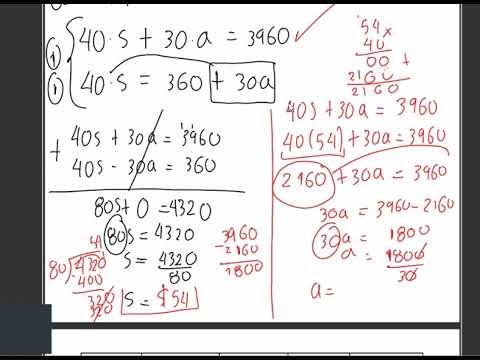 ① 40·s + 30·a = 3960
① 40·s = 360 + 30a
+ 40s + 30a = 3960
40s - 30a = 360
80s + 0 = 4320
80s = 4320
s = 4320
80
s = $54
54
80)4320
-400
320
320
3960
-2160
1800
54 x
40
00 +
2160
2160
40s + 30a = 3960
40(54) + 30a = 3960
2160 + 30a = 3960
30a = 3960 - 2160
30a = 1800
a = 1800
30
a =